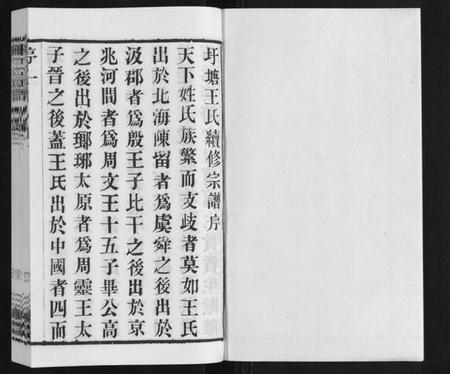 圩塘王氏續修宗譜序
天下姓氏族繁而支歧者莫如王氏
出於北海陳留者爲虞舜之後出於
汲郡者爲殷王子比干之後出於京
兆河間者爲周文王十五子畢公高
之後出於瑯琊太原者爲周靈王太
子晉之後蓋王氏出於中國者四而